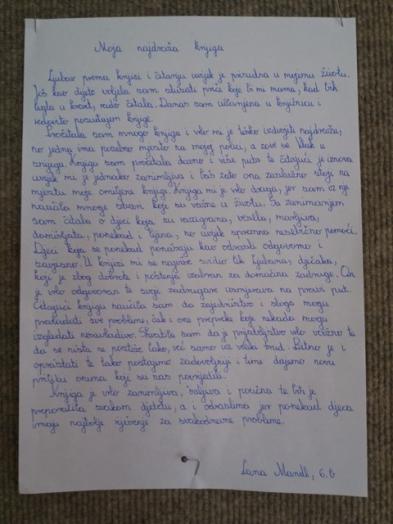 Moja najdraža knjiga
Ljubav prema knjizi i čitanju uvijek je prisutna u mojemu životu.
Još kao dijete voljela sam slušati priče koje bi mi mama, kad bih
legla u krevet, rado čitala. Danas sam učlanjena u knjižnicu i
redovito posuđujem knjige.
Pročitala sam mnogo knjiga i vrlo mi je teško izdvojiti najdražu,
no jedna ima posebno mjesto na mojoj polici, a zove se Vlak u
snijegu. Knjigu sam pročitala davno i više puta te čitajući je iznova
uvijek mi je jednako zanimljiva i baš zato ona zasluženo stoji na
mjestu moje omiljene knjige. Knjiga mi je vrlo draga, jer sam iz nje
naučila mnoge stvari koje su važne u životu. Sa zanimanjem
sam čitala o djeci koja su razigrana, vesela, marljiva,
domišljata, ponekad i lijena, no uvijek spremna nesebično pomoći.
Djeci koja se ponekad ponašaju kao odrasli odgovorno i
savjesno. U knjizi mi se najviše svidio lik Ljubana, dječaka,
koji je zbog dobrote i poštenja izabran za domaćina zadruge. On
je vrlo odgovoran te svoje zadrugare usmjerava na pravi put.
Čitajući knjigu naučila sam da zajedništvo i sloga mogu
prevladati sve probleme, čak i one prepreke koje nekada mogu
izgledati nesavladivo. Shvatila sam da je prijateljstvo vrlo važno te
da se ništa ne postiže lako, već samo uz veliki trud. Bitno je i
oprostiti te tako postajemo zadovoljniji i time dajemo novu
priliku onima koji su nas povrijedili.
Knjiga je vrlo zanimljiva, maštovita i poučna te bih je
preporučila svakom djetetu, a i odraslima jer ponekad djeca
imaju najbolje rješenje za svakodnevne probleme.
Lana Mandl, 6.b